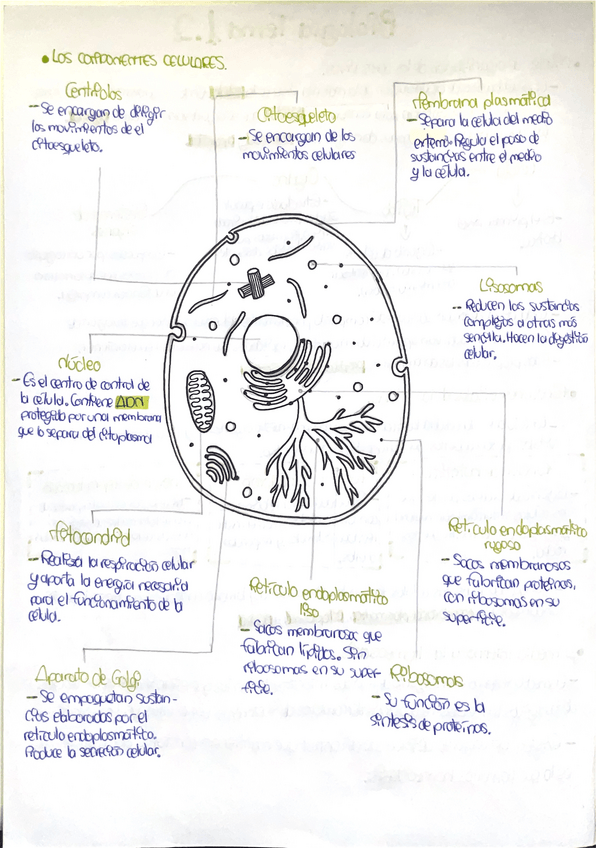 • LOS COMPONENTES CELULARES.
Centriolos
- Se encargan de dirigir
los movimientos de el
citoesqueleto.
Citoesqueleto
- Se encargan de los
movimientos celulares
Membrana plasmática
- Separa la célula del medio
externo. Regula el paso de
sustancias entre el medio
y la célula.
Lisosomas
- Reducen las sustancias
complejas a otras más
sencilla. Hacen la digestión
celular.
Núcleo
- Es el centro de control de
la célula. Contiene ADN
protegido por una membrana
que lo separa del citoplasma
Mitocondria
- Realiza la respiración celular
y aporta la energía necesaria
para el funcionamiento de la
célula.
Retículo endoplasmático
rugoso
- Sacos membranosos
que fabrican proteínas,
con ribosomas en su
superficie.
Retículo endoplasmático
liso
- Sacos membranosos que
fabrican lípidos. Sin
ribosomas en su super-
ficie.
Ribosomas
- Su función es la
síntesis de proteínas.
Aparato de Golgi
- Se empaquetan sustan-
cias elaboradas por el
retículo endoplasmático.
Produce la secreción celular.